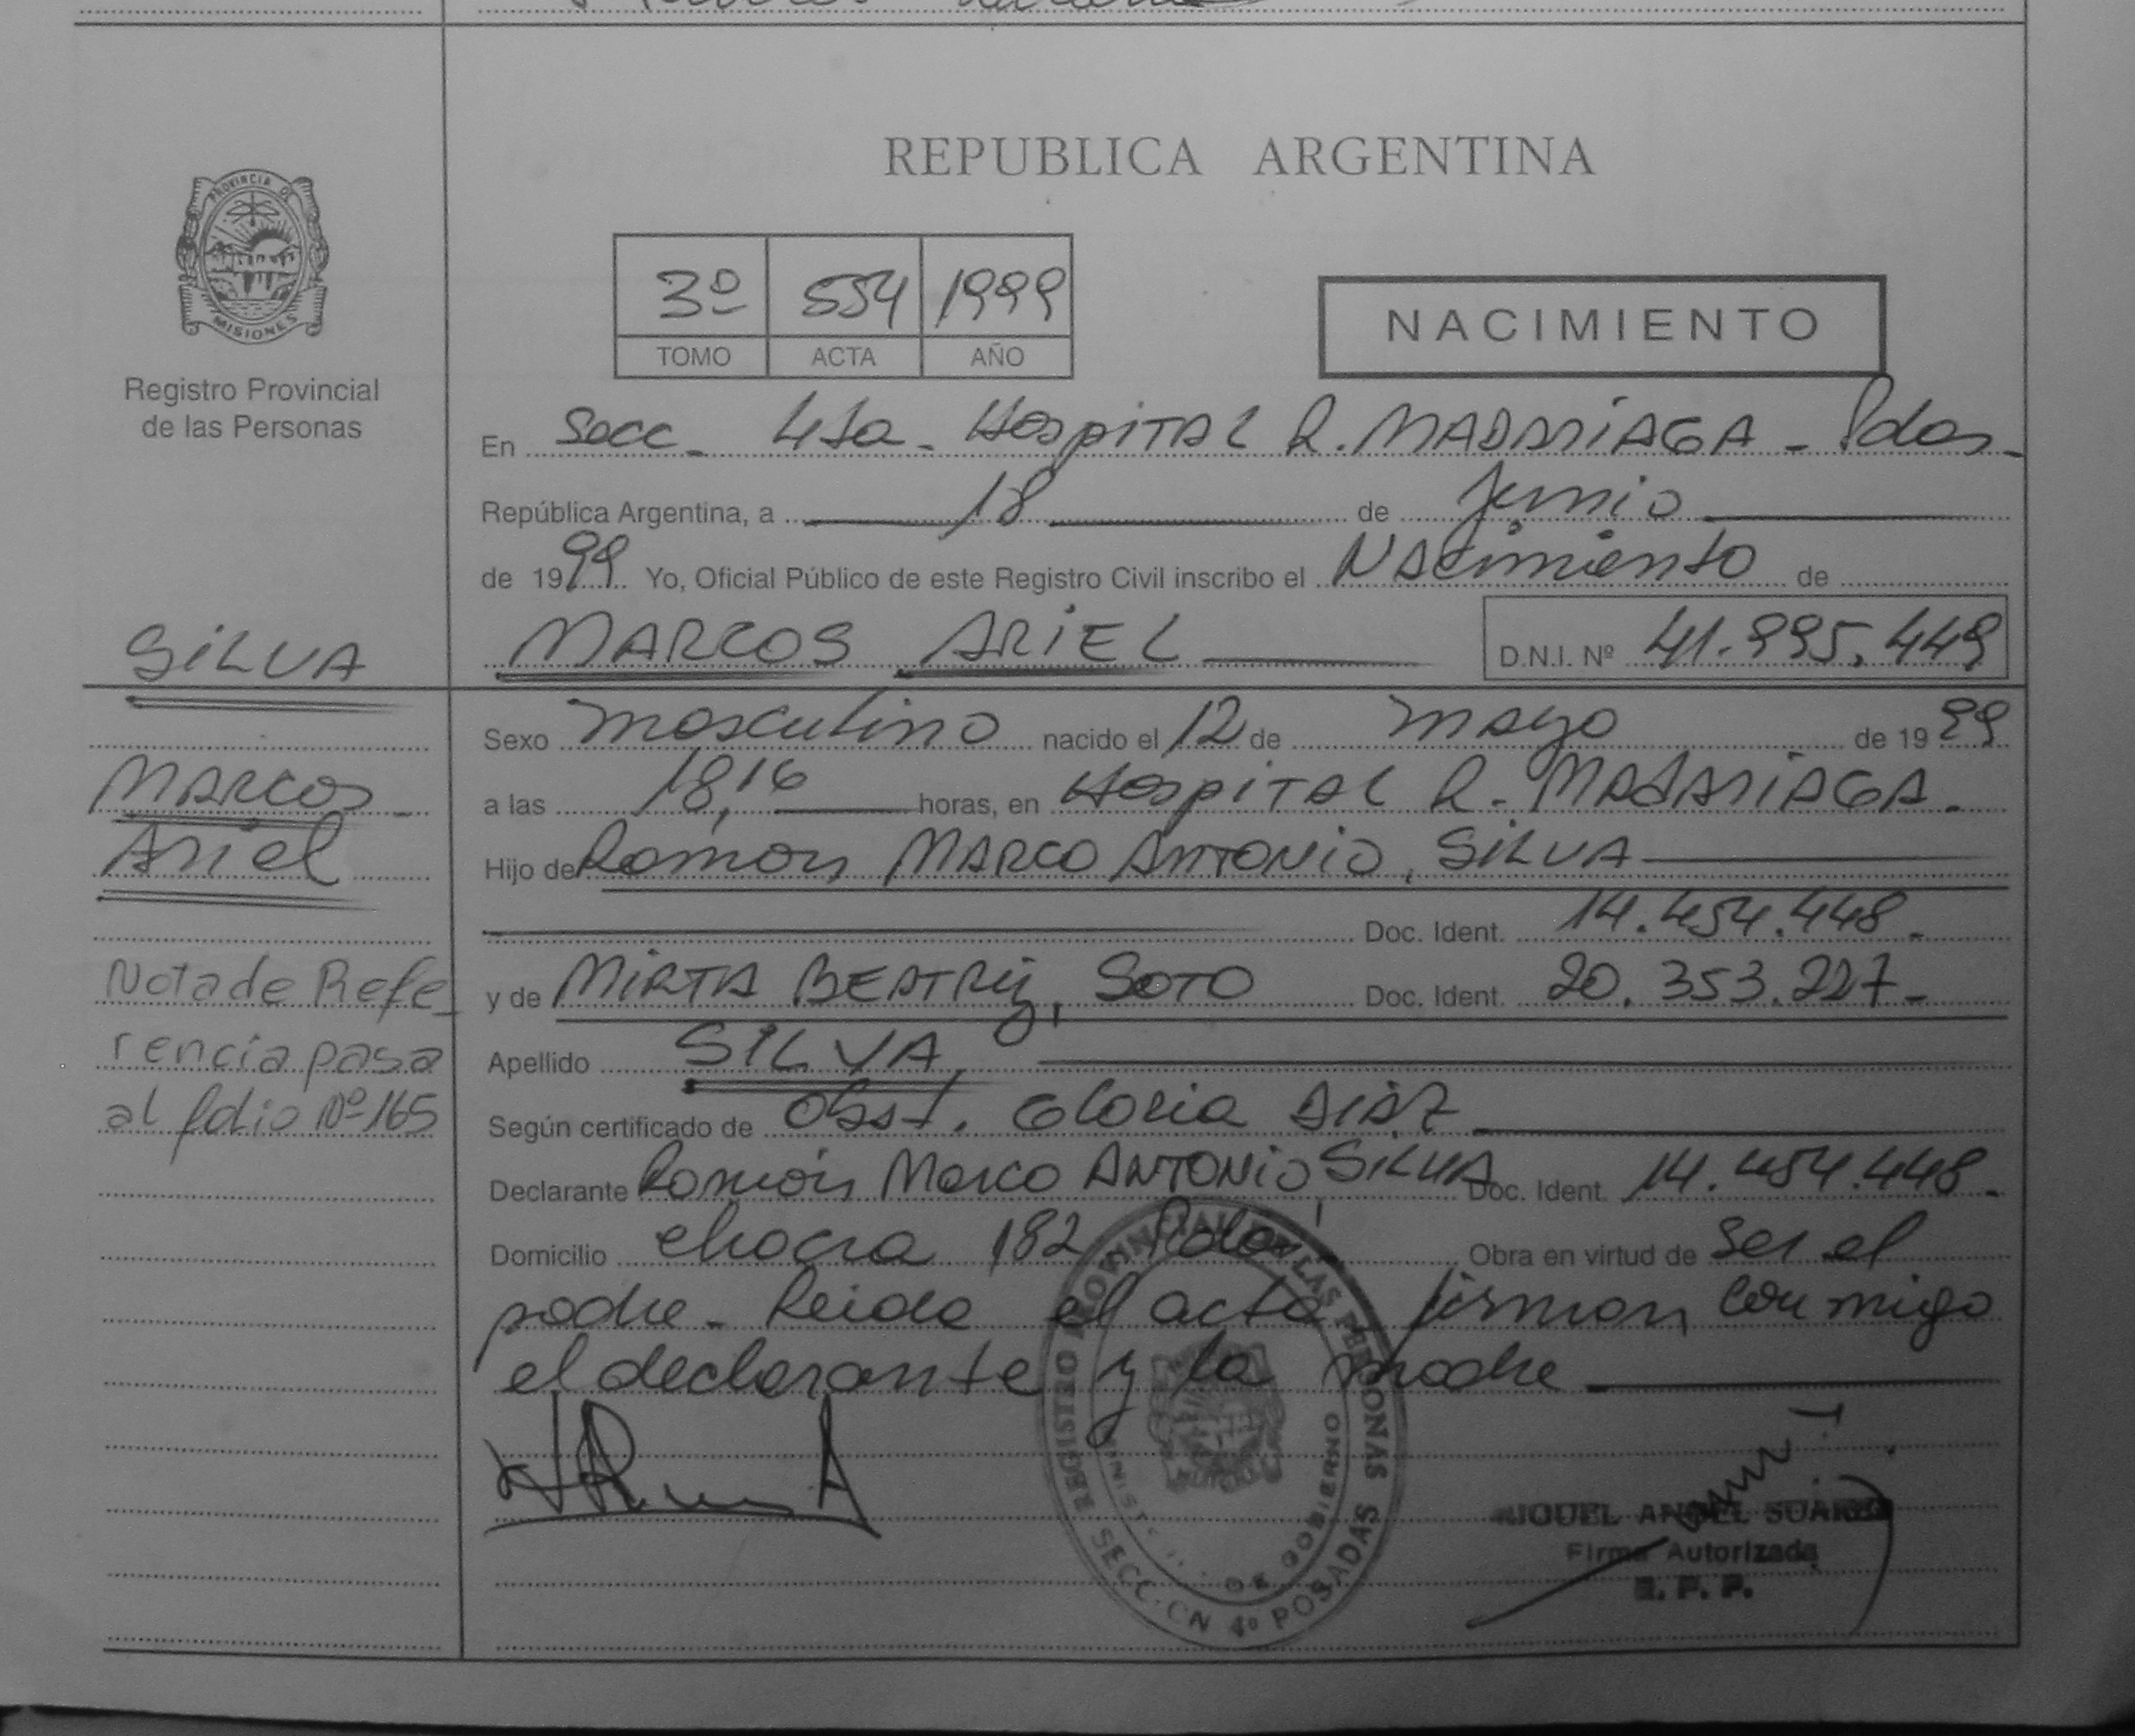 REPUBLICA ARGENTINA
PROVINCIA DE
MISIONES
Registro Provincial
de las Personas
3º 554 1999
TOMO ACTA AÑO
NACIMIENTO
En Secc. 4ta. Hospital R. MADARIAGA - Pdas.
República Argentina, a 18 de Junio
de 1999 Yo, Oficial Público de este Registro Civil inscribo el Nacimiento de
MARCOS ARIEL D.N.I. Nº 41.995.449
Sexo masculino nacido el 12 de mayo de 1999
a las 18,16 horas, en Hospital R. MADARIAGA.
Hijo de Ramón MARCO ANTONIO, SILVA
Doc. Ident. 14.454.448.
y de MIRTA BEATRIZ, SOTO Doc. Ident. 20.353.227.
Apellido SILVA
Según certificado de Obst. Gloria DIAZ
Declarante Ramón Marco ANTONIO SILVA Doc. Ident. 14.454.448.
Domicilio chacra 182 Pdas. Obra en virtud de Ser el
padre. Leida el acta firman conmigo
el declarante y la madre
SILVA
Marcos
Ariel
Nota de Refe
rencia pasa
al folio Nº 165
REGISTRO PROVINCIAL DE LAS PERSONAS
DE GOBIERNO
SECCION 4º POSADAS
MIGUEL ANGEL SUAREZ
Firma Autorizada
R. P. P.